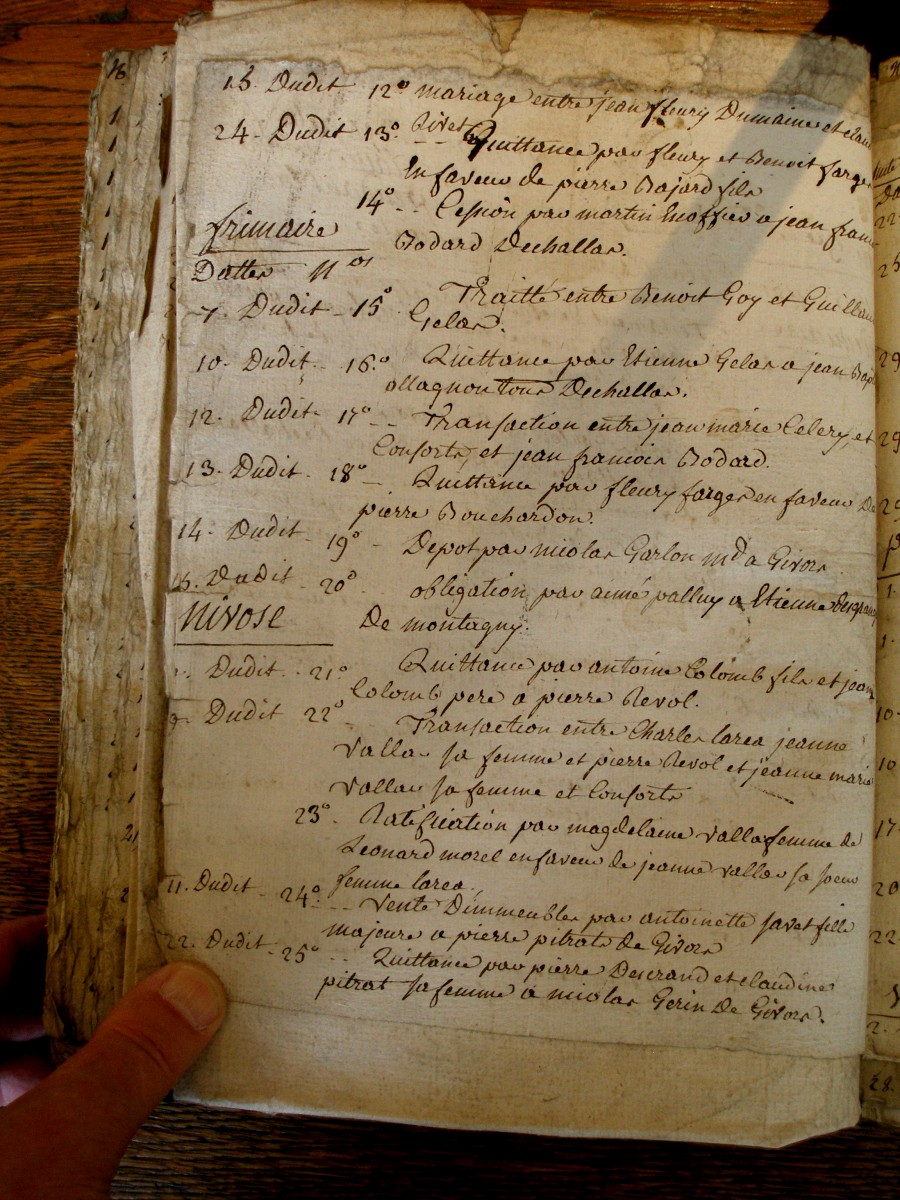 15. Dudit 12° mariage entre jean fleury Dumaine et
Rivet
24 - Dudit 13° - - Quittance par fleury et Benoit farge
En faveur de pierre Bajard fils
14° - - Cession par martin a jean fran
Bodard Dechallas.
frimaire
Dattes N os
7. Dudit - 15° Traitté entre Benoit Goy et Guillau
Gelas.
10. Dudit - 16° Quittance par Etienne Gelas a jean
ollagnon tous Dechallas.
12. Dudit - 17° - - Transaction entre jean marie Celery, et
Consorts, et jean francois Bodard.
13. Dudit. 18° - Quittance par fleury farges en faveur De
pierre Bouchardon.
14. Dudit - 19° - Depot par nicolas Garlon md a Givors
15. Dudit - 20° obligation par aimé palluy a Etienne
De montagny.
Nivose
Dudit - 21° Quittance par antoine Colomb fils et jean
Colomb pere a pierre Revol.
9. Dudit 22° - Transaction entre Charles larea jeanne
Vallas sa femme et pierre Revol et jeanne marie
Vallas sa femme et Consorts
23° - Ratification par magdelaine vallas femme de
Leonard morel en faveur de jeanne vallas sa soeur
femme larea.
11. Dudit - 24° - - Vente Dimmeubles par antoinette javet fille
majeure a pierre pitrat de Givors
22. Dudit - 25° - - Quittance par pierre et claudine
pitrat sa femme a nicolas Gerin De Givors.
22
29
29
1.
10
10
17
20
22
2.
28.